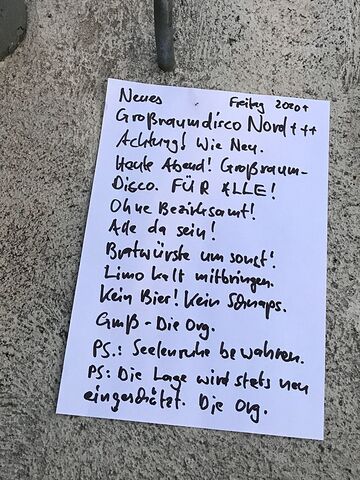 Neues Freitag 2020+
Großraumdisco Nord+++
Achtung! Wie Neu.
Heute Abend! Großraum-
Disco. FÜR ALLE!
Ohne Bezirksamt!
Alle da sein!
Bratwürste umsonst!
Limo kalt mitbringen.
Kein Bier! Kein Schnaps.
Gruß - Die Org.
PS.: Seelenruhe bewahren.
PS: Die Lage wird stets neu
eingeschätzt. Die Org.